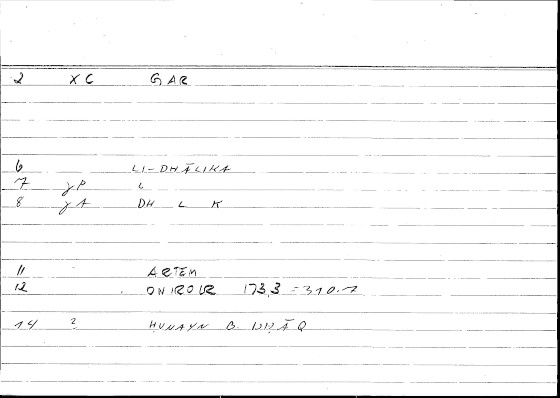 2 XC GAR
6 LI-DHĀLIKA
7 γP L
8 γA DH L K
11 ARTEM
12 ONIROCR 173,3 = 310.7
14 ? ḤUNAYN B. ISḤĀQ